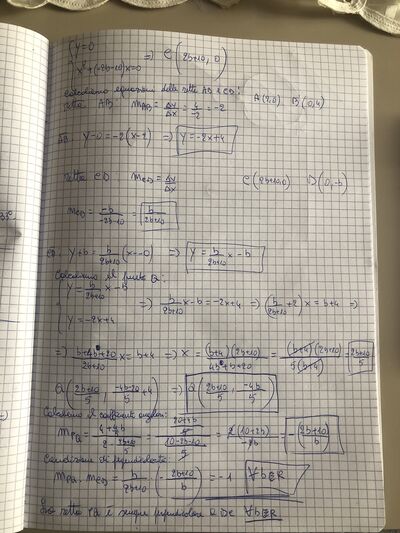 { y=0
x²+(-2b-10)x=0 => C(2b+10, 0)
Calcoliamo equazioni delle rette AB e CD:
retta AB m_AB = Δy/Δx = 4/-2 = -2 A(2,0) B(0,4)
AB y-0=-2(x-2) => y=-2x+4
retta CD m_CD = Δy/Δx C(2b+10,0) D(0,-b)
m_CD = -b/-2b-10 = b/2b+10
CD: y+b = b/2b+10 (x-0) => y = b/2b+10 x-b
Calcoliamo il punto Q:
{ y = b/2b+10 x-b
y=-2x+4 => b/2b+10 x-b=-2x+4 => (b/2b+10 +2) x = b+4 =>
=> b+4b+20/2b+10 x = b+4 => x = (b+4)(2b+10)/4b+b+20 = (b+4)(2b+10)/5(b+4) = 2b+10/5
Q(2b+10/5, -4b-20/5 +4) => Q(2b+10/5, -4b/5)
Calcoliamo il coefficiente angolare:
Condizione di perpendicolarità
m_PQ · m_CD = b/2b+10 · (- 2b+10/b) = -1 ∀b∈R
retta PQ è sempre perpendicolare a DC ∀b∈R